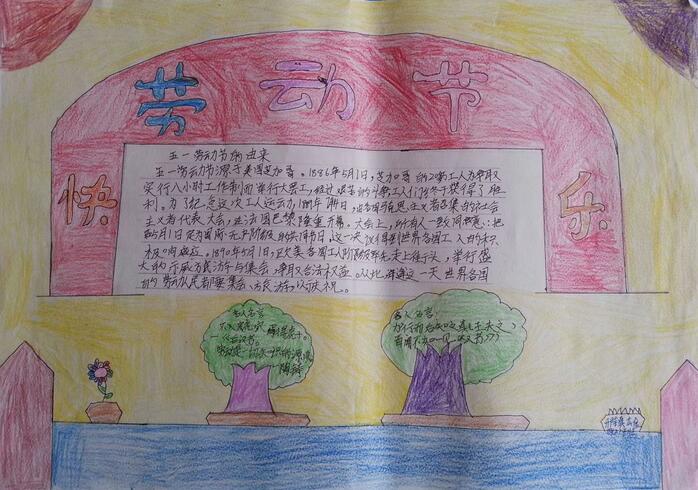 劳动节
快 乐
五一劳动节的由来
五一劳动节源于美国芝加哥。1886年5月1日,芝加哥的20万工人为争取
实行八小时工作制而举行大罢工,经过艰苦的斗争工人们终于获得了胜
利。为了纪念这次工人运动,
主义者代表大会,在法国巴黎隆重开幕。大会上,所有人一致同意:把
5月1日定为国际无产阶级的共同节日。这一决议得到世界各国工人的积
极响应。1890年5月1日,欧美各国工人阶级率先走上街头,举行盛
大的示威游行与集会,争取合法权益。从此,每逢这一天世界各国
的劳动人民都要集会、游行,以示庆祝。
名人名言
不入虎穴,焉得虎子。
《后汉书》
劳动是一切
名人名言:
百闻不如一见《汉书》